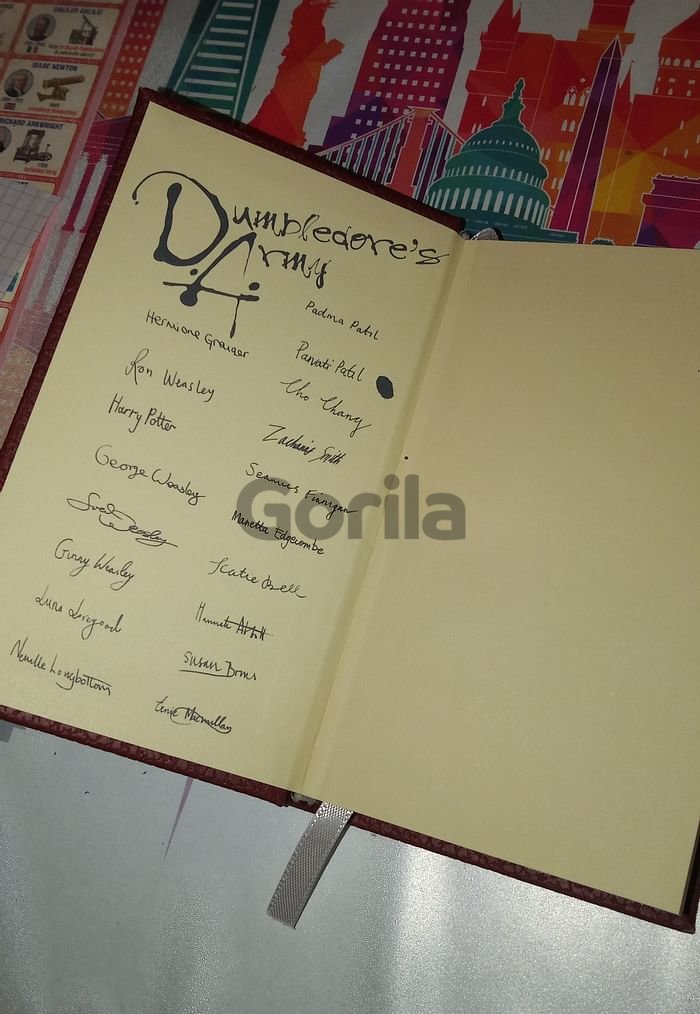 GALILEO GALILEI
ISAAC NEWTON
RICHARD ARKWRIGHT
Dumbledore's
Army
D.A.
Hermione Granger
Ron Weasley
Harry Potter
George Weasley
Fred Weasley
Ginny Weasley
Luna Lovegood
Neville Longbottom
Padma Patil
Parvati Patil
Cho Chang
Zacharias Smith
Seamus Finnigan
Marietta Edgecombe
Katie Bell
Hannah Abbott
Susan Bones
Ernie Macmillan
Gorila